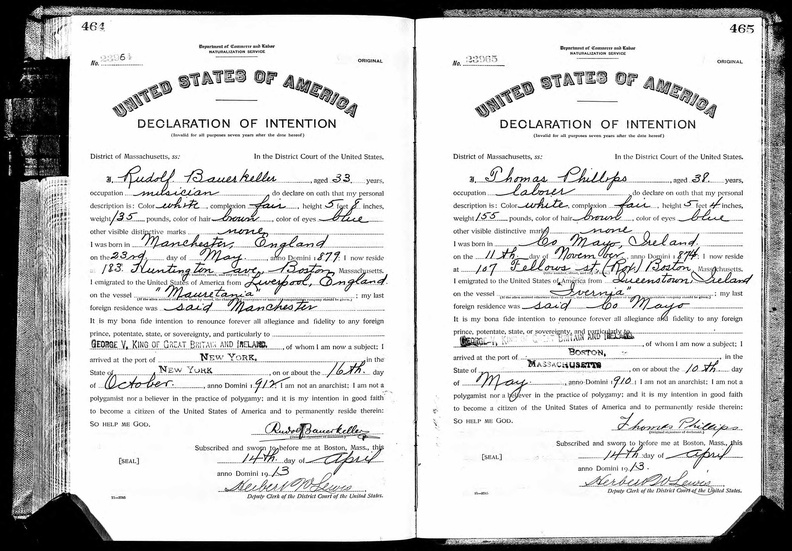 464
Department of Commerce and Labor
NATURALIZATION SERVICE
No. 23964
ORIGINAL
UNITED STATES OF AMERICA
DECLARATION OF INTENTION
(Invalid for all purposes seven years after the date hereof)
District of Massachusetts, ss: In the District Court of the United States.
I, Rudolf Bauerkeller, aged 33 years,
occupation musician, do declare on oath that my personal
description is: Color white, complexion fair, height 5 feet 8 inches,
weight 135 pounds, color of hair brown, color of eyes blue
other visible distinctive marks none
I was born in Manchester, England
on the 23rd day of May, anno Domini 1879; I now reside
at 183 Huntington ave, Boston Massachusetts.
I emigrated to the United States of America from Liverpool, England
on the vessel "Mauretania"; my last
foreign residence was said Manchester
It is my bona fide intention to renounce forever all allegiance and fidelity to any foreign
prince, potentate, state, or sovereignty, and particularly to
GEORGE V, KING OF GREAT BRITAIN AND IRELAND, of whom I am now a subject; I
arrived at the port of NEW YORK, in the
State of NEW YORK on or about the 16th day
of October, anno Domini 1912; I am not an anarchist; I am not a
polygamist nor a believer in the practice of polygamy; and it is my intention in good faith
to become a citizen of the United States of America and to permanently reside therein:
SO HELP ME GOD.
Rudolf Bauerkeller
Subscribed and sworn to before me at Boston, Mass., this
[SEAL] 14th day of April
anno Domini 1913
Herbert W Lewis
Deputy Clerk of the District Court of the United States.
465
Department of Commerce and Labor
NATURALIZATION SERVICE
No. 23965
ORIGINAL
UNITED STATES OF AMERICA
DECLARATION OF INTENTION
(Invalid for all purposes seven years after the date hereof)
District of Massachusetts, ss: In the District Court of the United States.
I, Thomas Phillips, aged 38 years,
occupation laborer, do declare on oath that my personal
description is: Color white, complexion fair, height 5 feet 4 inches,
weight 155 pounds, color of hair brown, color of eyes blue
other visible distinctive marks none
I was born in Co Mayo, Ireland
on the 11th day of November, anno Domini 1874; I now reside
at 107 Fellows st, (Rox) Boston Massachusetts.
I emigrated to the United States of America from Queenstown, Ireland
on the vessel "Ivernia"; my last
foreign residence was said Co Mayo
It is my bona fide intention to renounce forever all allegiance and fidelity to any foreign
prince, potentate, state, or sovereignty, and particularly to
GEORGE V, KING OF GREAT BRITAIN AND IRELAND, of whom I am now a subject; I
arrived at the port of BOSTON, in the
State of MASSACHUSETTS on or about the 10th day
of May, anno Domini 1910; I am not an anarchist; I am not a
polygamist nor a believer in the practice of polygamy; and it is my intention in good faith
to become a citizen of the United States of America and to permanently reside therein:
SO HELP ME GOD.
Thomas Phillips
Subscribed and sworn to before me at Boston, Mass., this
[SEAL] 14th day of April
anno Domini 1913.
Herbert W Lewis
Deputy Clerk of the District Court of the United States.